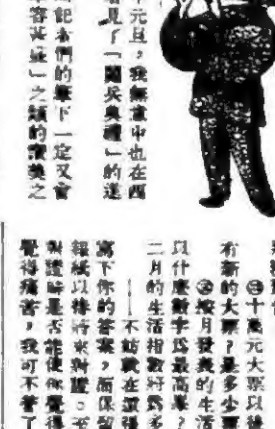 年元旦，我無意中也在西
看見了「閱兵典禮」的進
記本們的筆下一定又會
容甚盛」之類的讚美之
㊂十萬元大票以後
有新的大票？是多少票
㊃按月發表的生活
以什麼數字爲最高峯？
二月的生活指數將爲多
——不妨就在這張
寫下你的答案，而保留
報紙以待將來對證。至
對證時是否能使你覺得
覺得痛苦，我可不管了